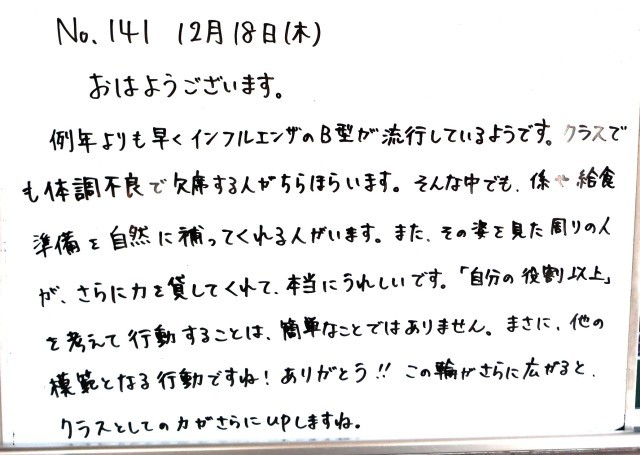 No.141 12月18日(木)
おはようございます。
例年よりも早くインフルエンザのB型が流行しているようです。クラスで
も体調不良で欠席する人がちらほらいます。そんな中でも、係や給食
準備を自然に補ってくれる人がいます。また、その姿を見た周りの人
が、さらに力を貸してくれて、本当にうれしいです。「自分の役割以上」
を考えて行動することは、簡単なことではありません。まさに、他の
模範となる行動ですね!ありがとう!!この輪がさらに広がると、
クラスとしての力がさらにupしますね。